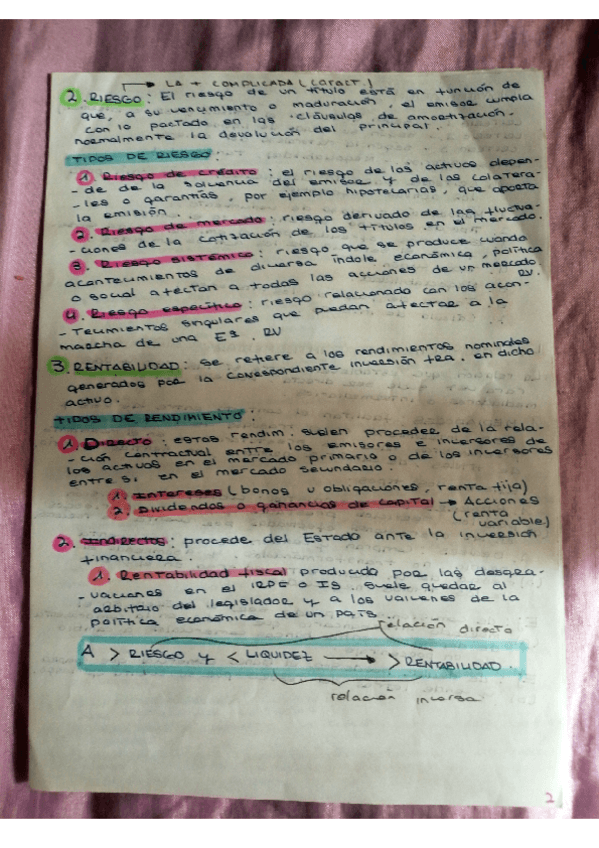 LA + COMPLICADA (caract.)
2. RIESGO: El riesgo de un título está en función de
que, a su vencimiento o maduración, el emisor cumpla
con lo pactado en las cláusulas de amortización.
normalmente la devolución del principal.
TIPOS DE RIESGO:
1. Riesgo de crédito: el riesgo de los activos depen-
-de de la solvencia del emisor y de las colatera-
-les o garantías, por ejemplo hipotecarias, que aporta
la emisión.
2. Riesgo de mercado: riesgo derivado de las fluctua-
-ciones de la cotización de los títulos en el mercado.
3. Riesgo sistémico: riesgo que se produce cuando
acontecimientos de diversa índole económica, política
o social afectan a todas las acciones de un mercado.
RV.
4. Riesgo específico: riesgo relacionado con los acon-
-tecimientos singulares que puedan afectar a la
marcha de una Eª. RV
3. RENTABILIDAD: se refiere a los rendimientos nominales
generados por la correspondiente inversión fra. en dicho
activo.
TIPOS DE RENDIMIENTO:
1. Directo: estos rendim. suelen proceder de la rela-
-ción contractual entre los emisores e inversores de
los activos en el mercado primario o de los inversores
entre sí en el mercado secundario.
1. Intereses (bonos u obligaciones, renta fija)
2. Dividendos o ganancias de capital → Acciones
(renta
variable)
2. Indirectos: procede del Estado ante la inversión
financiera.
1. Rentabilidad fiscal producido por las desgra-
-vaciones en el IRPF o IS. Suele quedar al
arbitrio del legislador y a los vaivenes de la
política económica de un país.
relación directa
A > RIESGO y < LIQUIDEZ → > RENTABILIDAD.
relación inversa
2